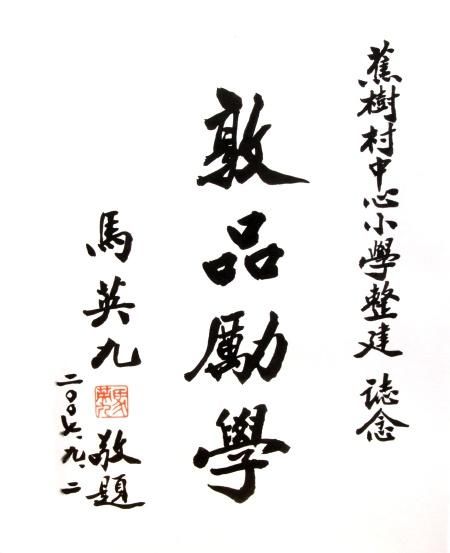 蕉樹村中心小學整建 誌念
敦品勵學
馬英九 敬題
二〇〇 .九.二
馬英九